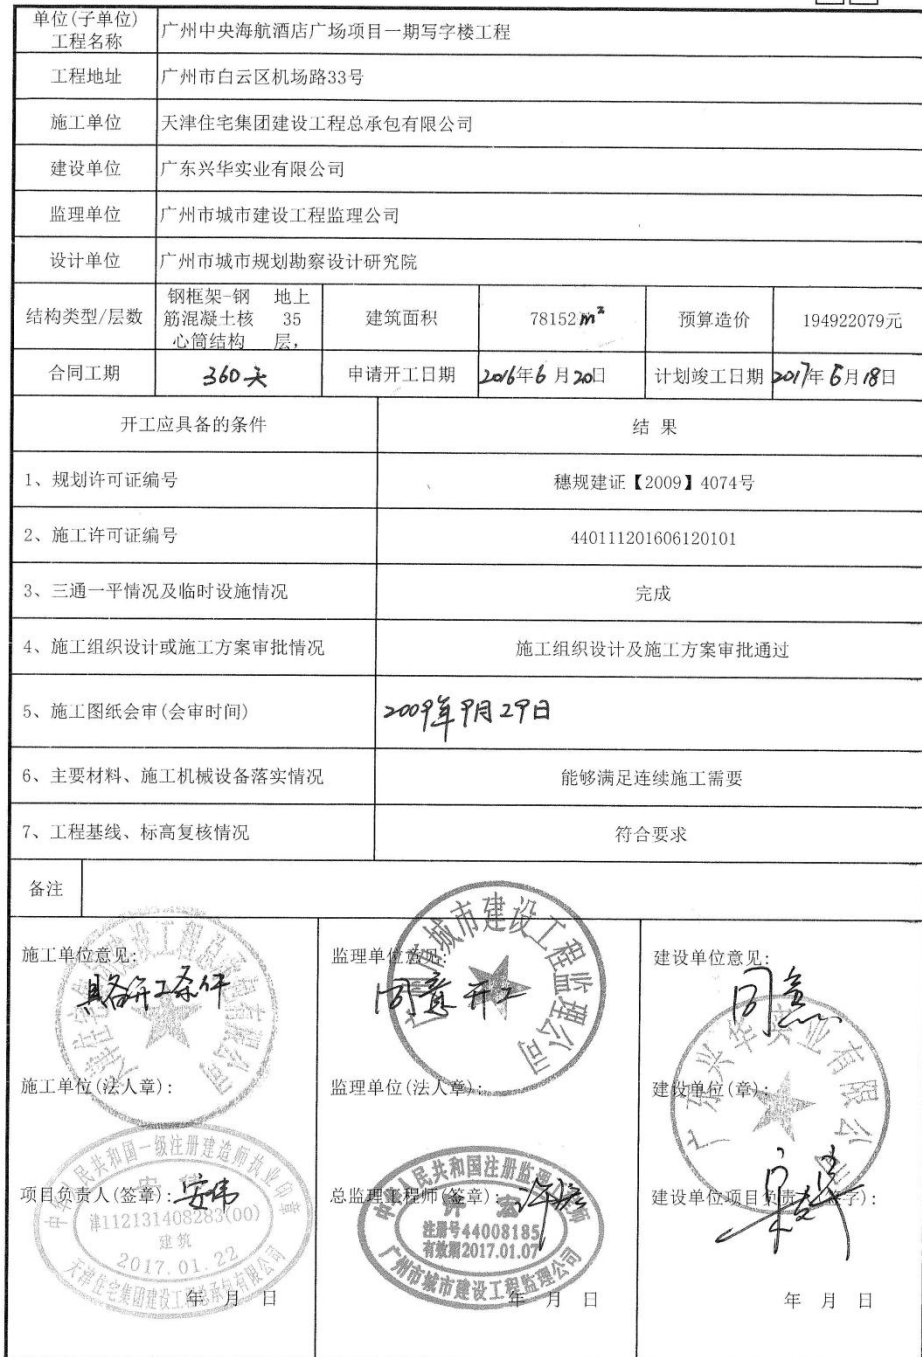 单位(子单位)
工程名称
广州中央海航酒店广场项目一期写字楼工程
工程地址
广州市白云区机场路33号
施工单位
天津住宅集团建设工程总承包有限公司
建设单位
广东兴华实业有限公司
监理单位
广州市城市建设工程监理公司
设计单位
广州市城市规划勘察设计研究院
结构类型/层数
钢框架-钢 地上
筋混凝土核 35
心筒结构 层,
建筑面积
78152m²
预算造价
194922079元
合同工期
360天
申请开工日期
2016年6月20日
计划竣工日期
2017年6月18日
开工应具备的条件
结 果
1、规划许可证编号
穗规建证【2009】4074号
2、施工许可证编号
440111201606120101
3、三通一平情况及临时设施情况
完成
4、施工组织设计或施工方案审批情况
施工组织设计及施工方案审批通过
5、施工图纸会审(会审时间)
2009年9月29日
6、主要材料、施工机械设备落实情况
能够满足连续施工需要
7、工程基线、标高复核情况
符合要求
备注
施工单位意见:
具备开工条件
天津住宅集团建设工程总承包有限公司
施工单位(法人章):
中华人民共和国一级注册建造师执业印章
安伟
项目负责人(签章):
安伟
津112131408283(00)
建筑
2017.01.22
天津住宅集团建设工程总承包有限公司
年 月 日
监理单位意见:
同意开工
广州市城市建设工程监理公司
监理单位(法人章):
中华人民共和国注册监理工程师
许宏
总监理工程师(签章):
注册号44008185
有效期2017.01.07
广州市城市建设工程监理公司
年 月 日
建设单位意见:
同意
广东兴华实业有限公司
建设单位(章):
建设单位项目负责人(签字):
年 月 日